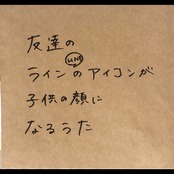 友達の
ラインのアイコンが
LINE
子供の顔に
なるうた